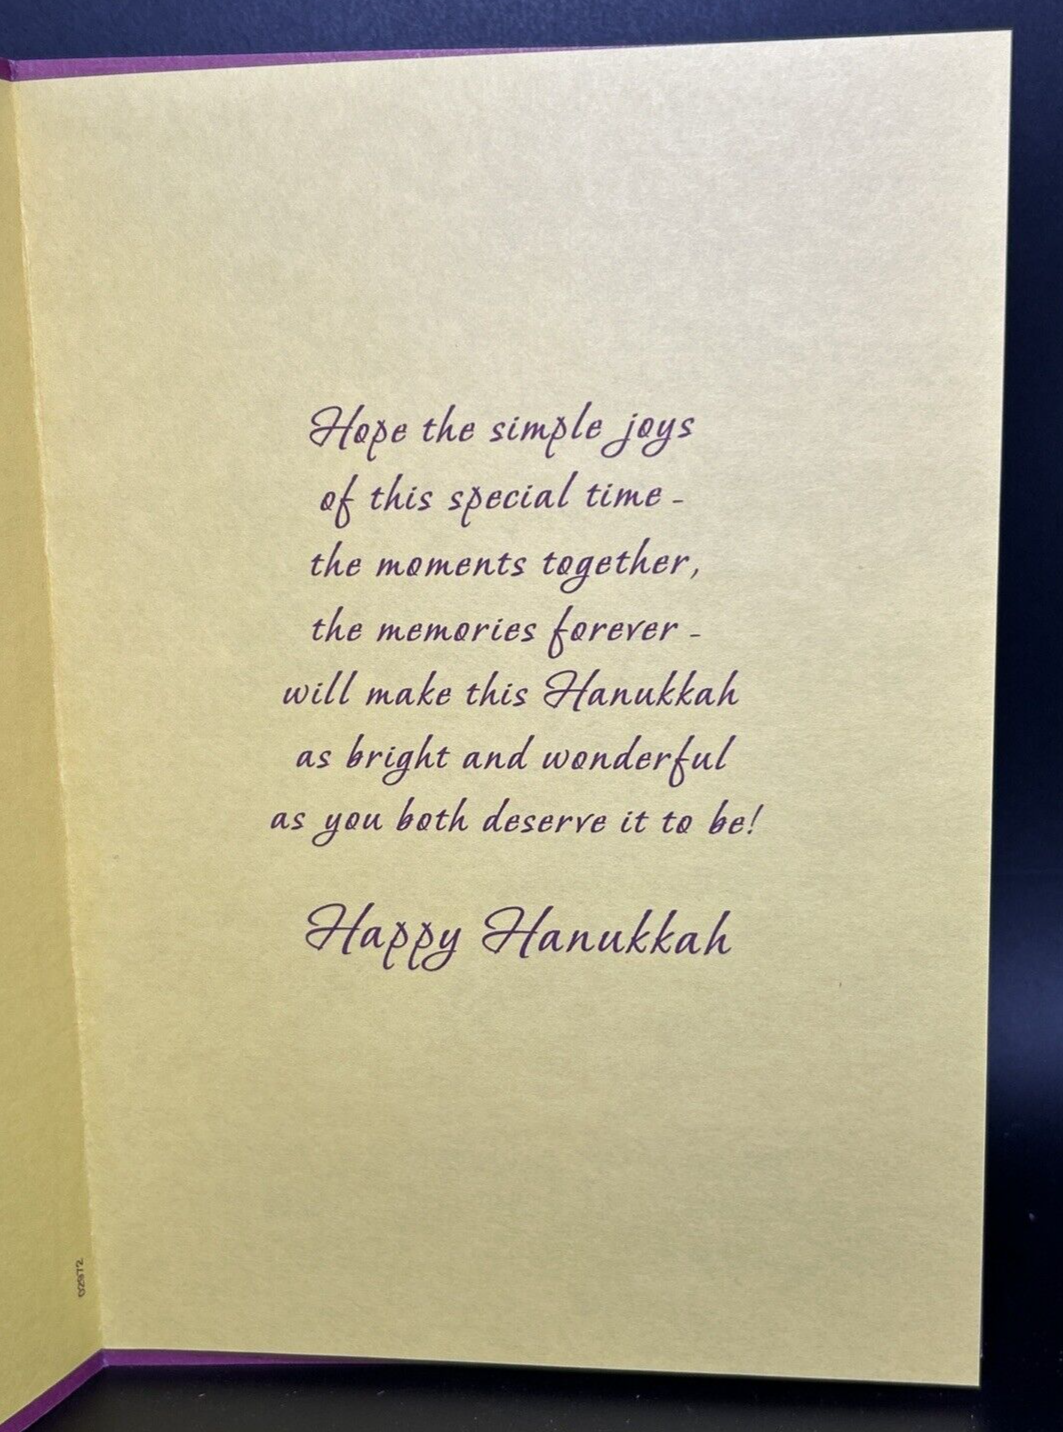 Hope the simple joys
of this special time -
the moments together,
the memories forever -
will make this Hanukkah
as bright and wonderful
as you both deserve it to be!
Happy Hanukkah